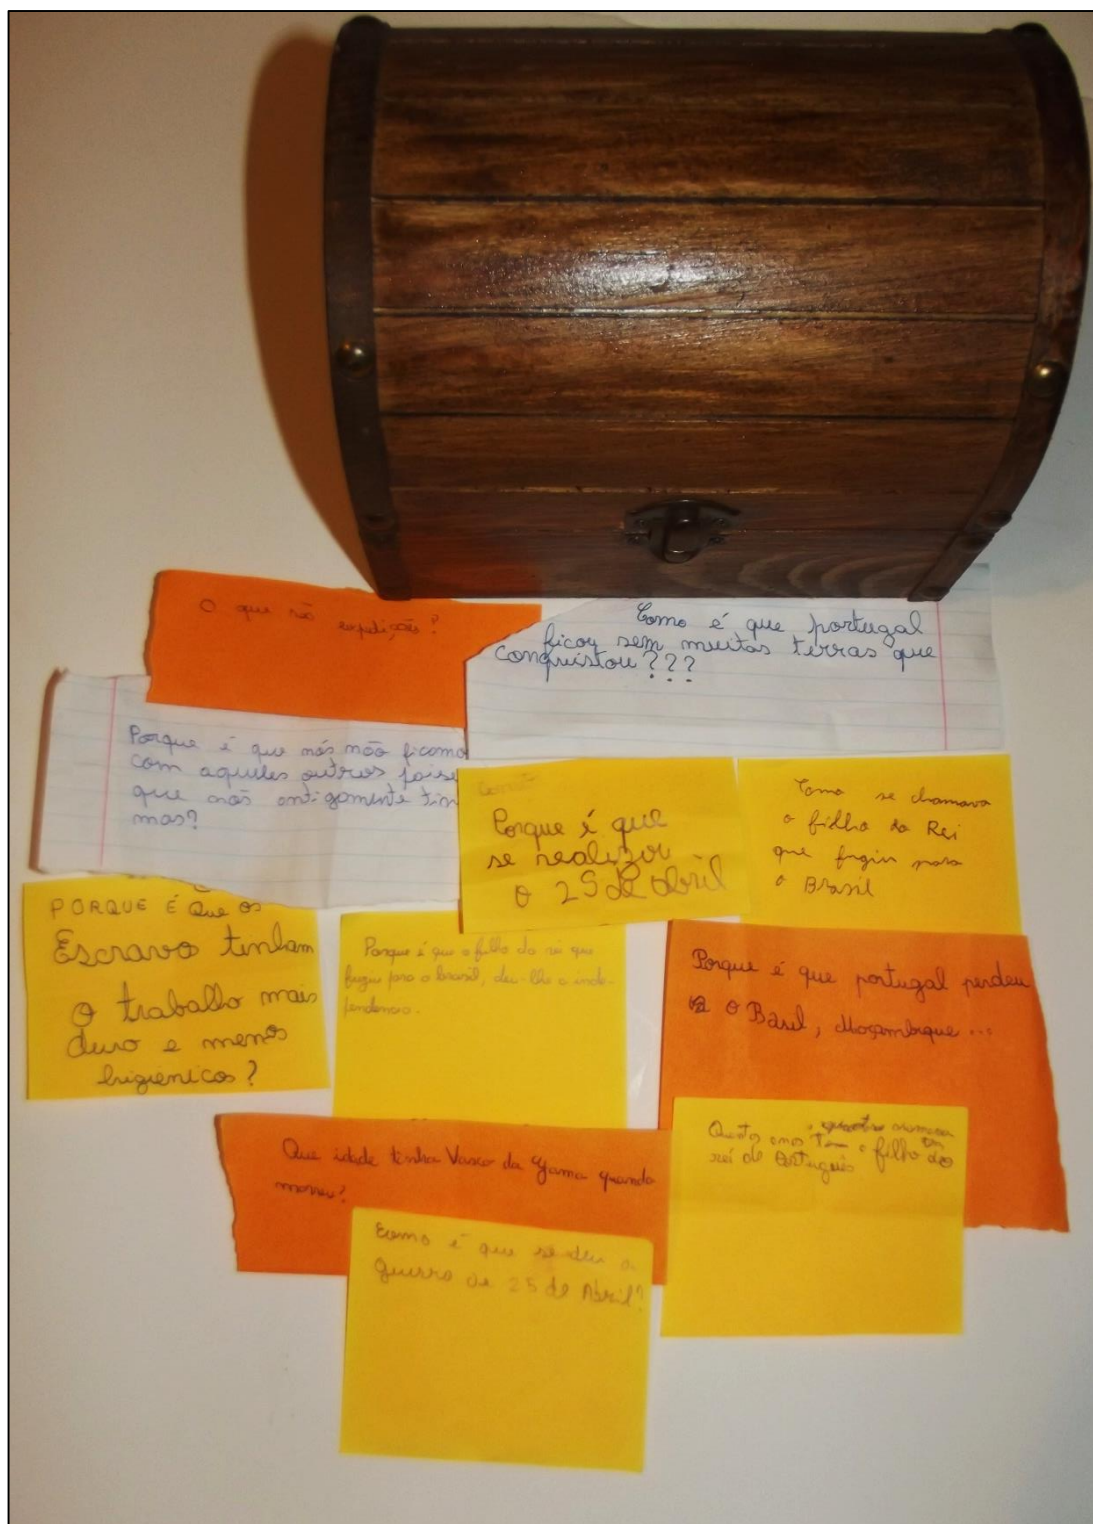 O que são expedições?
Como é que portugal
ficou sem muitas terras que
conquistou???
Porque é que nós não ficamo
com aqueles outros paise
que nós antigamente tin
mos?
Porque é que
se realizou
o 25 de abril
Como se chamava
o filho do Rei
que fugiu para
o Brasil
PORQUE É QUE OS
Escravo tinham
o trabalho mais
duro e menos
higiénicos?
Porque é que o filho do rei que
fugiu para o brasil, deu-lhe a inde-
pendencia.
Porque é que portugal perdeu
o Basil, Moçambique...
Que idade tinha Vasco da Gama quando
morreu?
Quantos anos o filho do
rei de Português
Como é que se deu a
guerra de 25 de Abril?